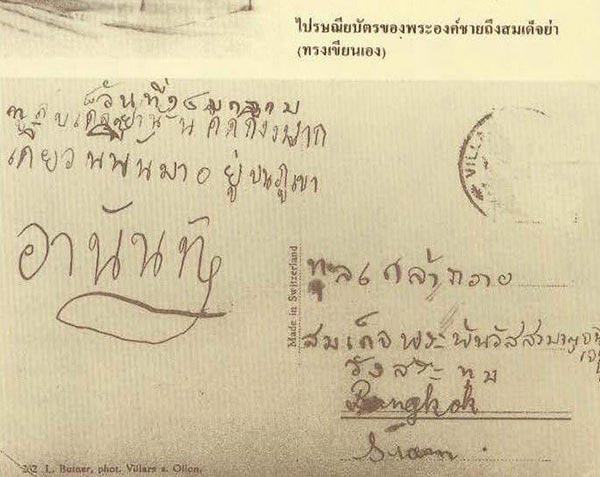 ไปรษณียบัตรของพระองค์ชายถึงสมเด็จย่า
(ทรงเขียนเอง)
วันที่ ๘ มกราคม
ทูลสมเด็จย่า นันคิดถึงมาก
เดี๋ยวนี้นันมาอยู่บนภูเขา
อานันท
Made in Switzerland
ทูลเกล้าถวาย
สมเด็จพระพันวัสสา
วังสระทุม
Bangkok
Siam.
262 L. Butner, phot. Villars s. Ollon.